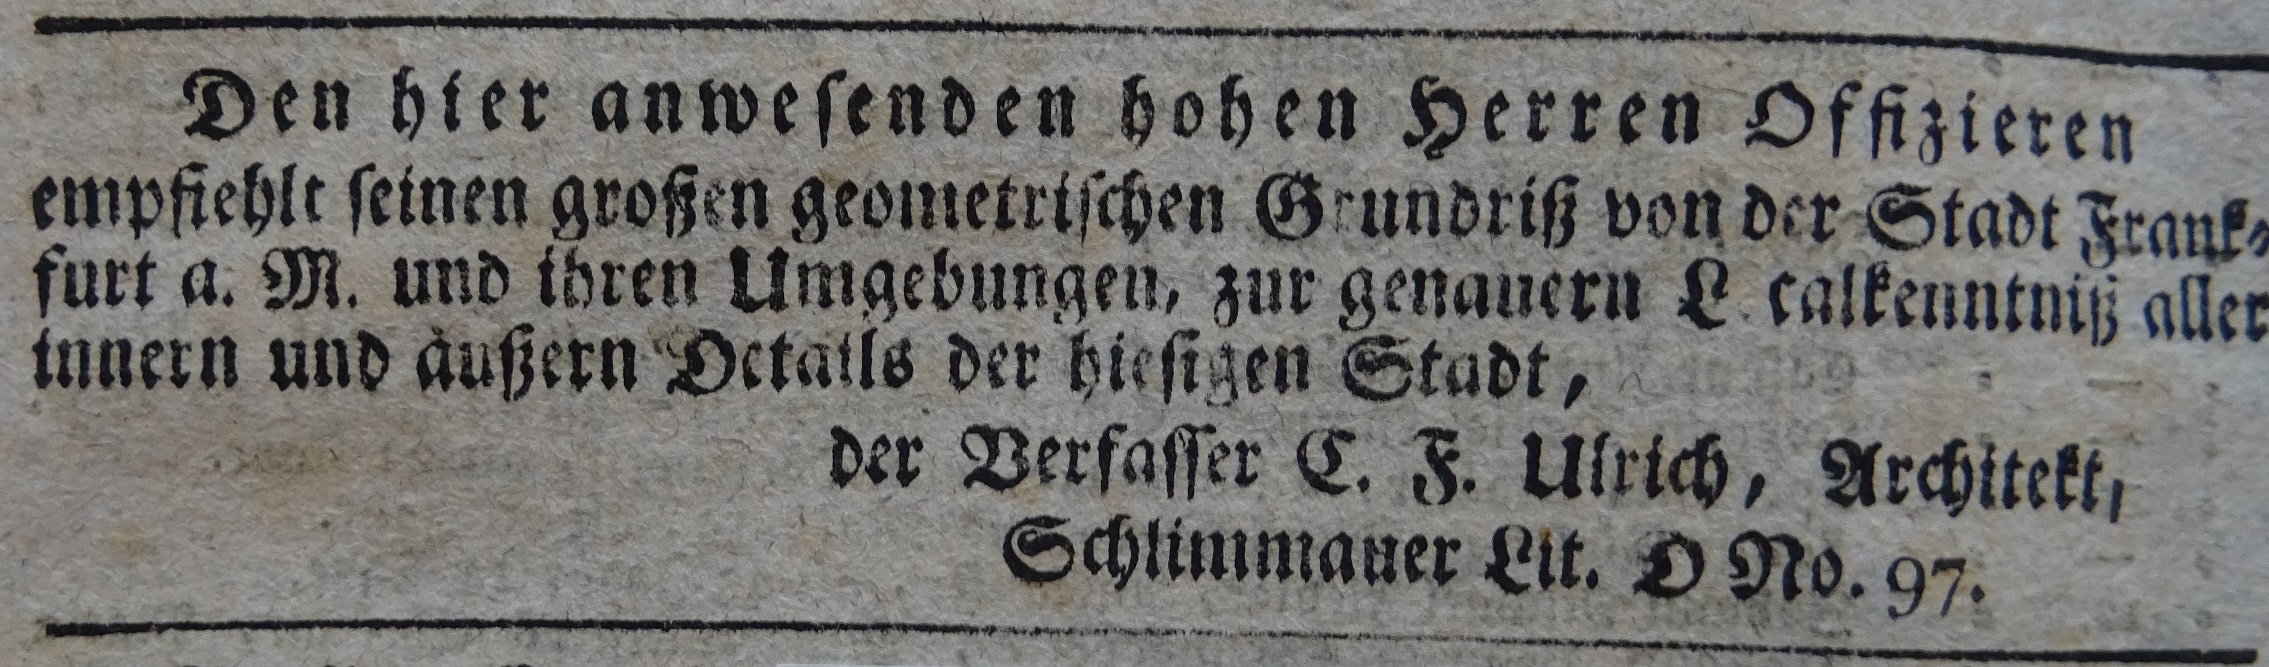 Den hier anwesenden hohen Herren Offizieren
empfiehlt seinen großen geometrischen Grundriß von der Stadt Frank-
furt a. M. und ihren Umgebungen, zur genauern L calkenntniß aller
innern und äußern Details der hiesigen Stadt,
der Verfasser C. F. Ulrich, Architekt,
Schlimmauer Lit. D No. 97.